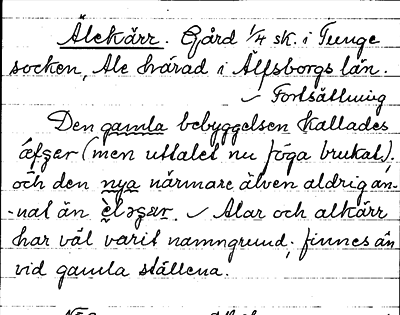 Älekärr. Gård 1/4 sk. i Tunge
socken, Ale härad i Älfsborgs län.
✓ Fortsättning
Den gamla bebyggelsen kallades
(men uttalet nu föga brukat).
och den nya närmare älven aldrig an-
-nat än ✓ Alar och alkärr
har väl varit namngrund; finnes än
vid gamla ställena.